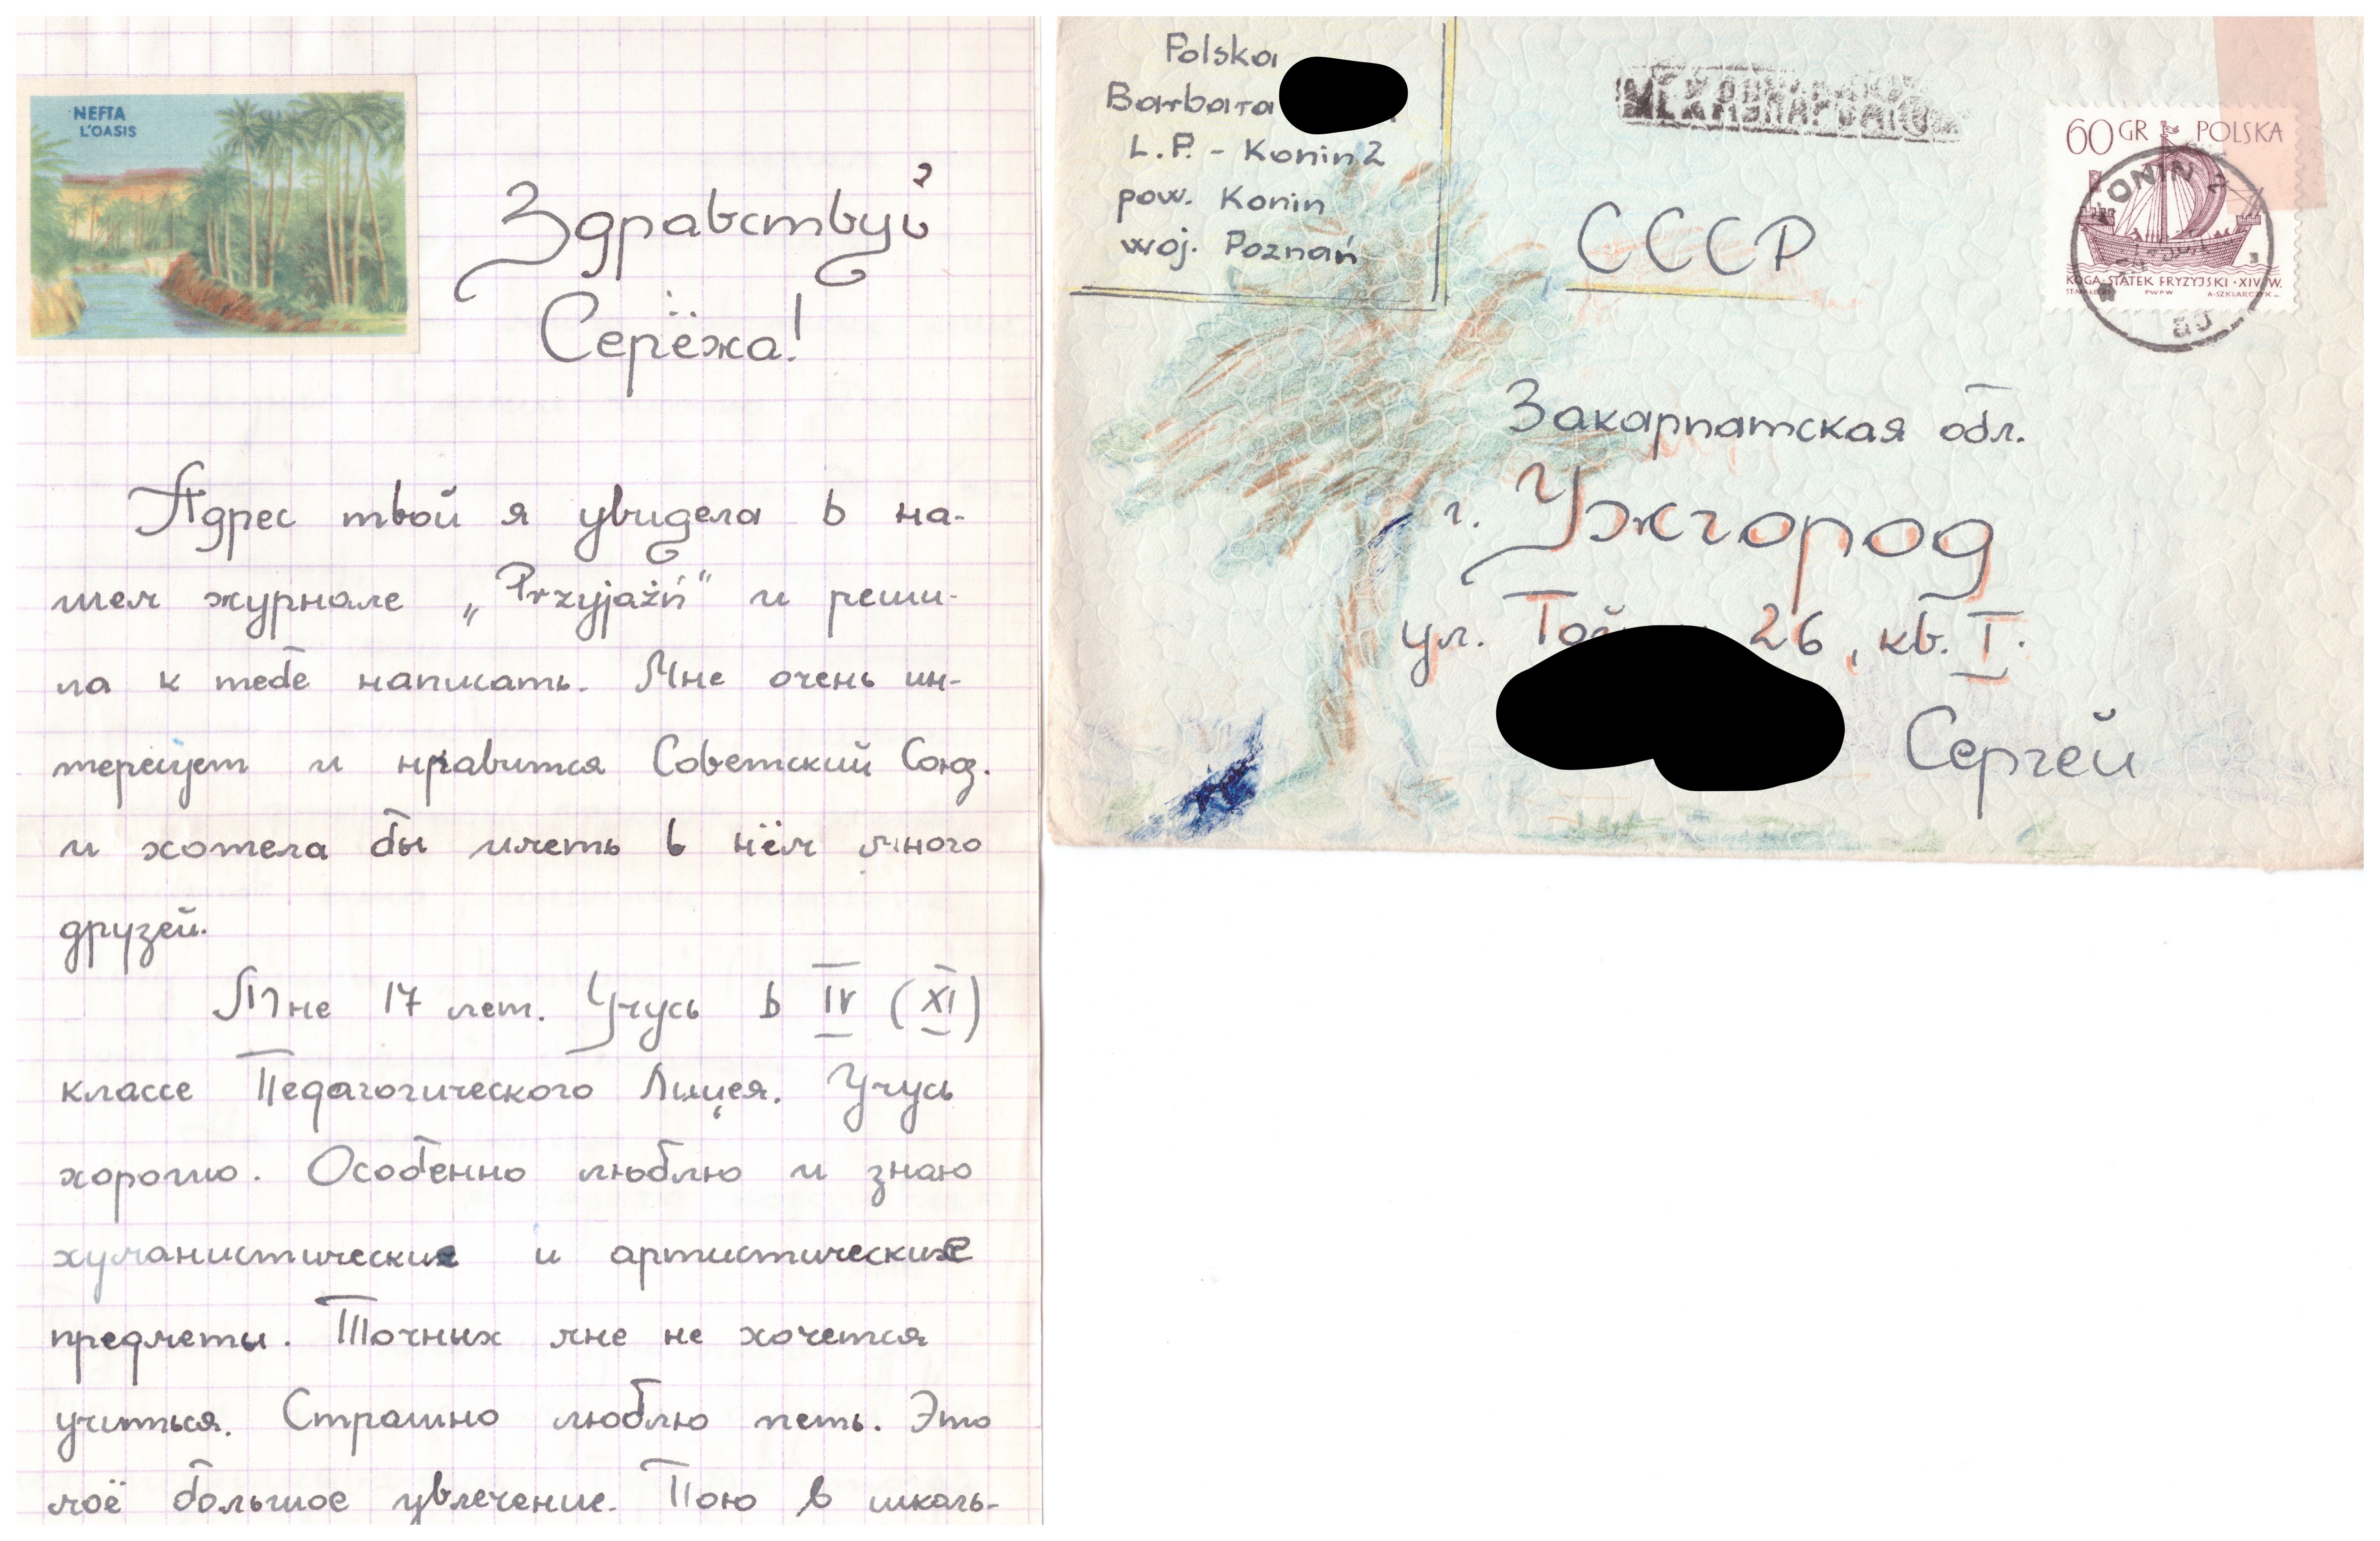 NEFTA
L'OASIS
Здравствуй
Серёжа!
Адрес твой я увидела в на-
шем журнале „Przyjaźń" и реши-
ла к тебе написать. Мне очень ин-
тересует и нравится Советский Союз.
и хотела бы иметь в нём много
друзей.
Мне 17 лет. Учусь в IV (XI)
классе Педагогического Лицея. Учусь
хорошо. Особенно люблю и знаю
хуманистические и артистические
предметы. Точных мне не хочется
учиться. Страшно люблю петь. Это
моё большое увлечение. Пою в школь-
Polska
Barbara
L.P. - Konin 2
pow. Konin
woj. Poznań
МЕЖДУНАРОДНОЕ
60 GR POLSKA
KONIN 2
KOGA-STATEK FRYZYJSKI·XIV W.
PWPW A·SZKLARCZYK
СССР
Закарпатская обл.
г. Ужгород
ул. 26, кв. I.
Сергей